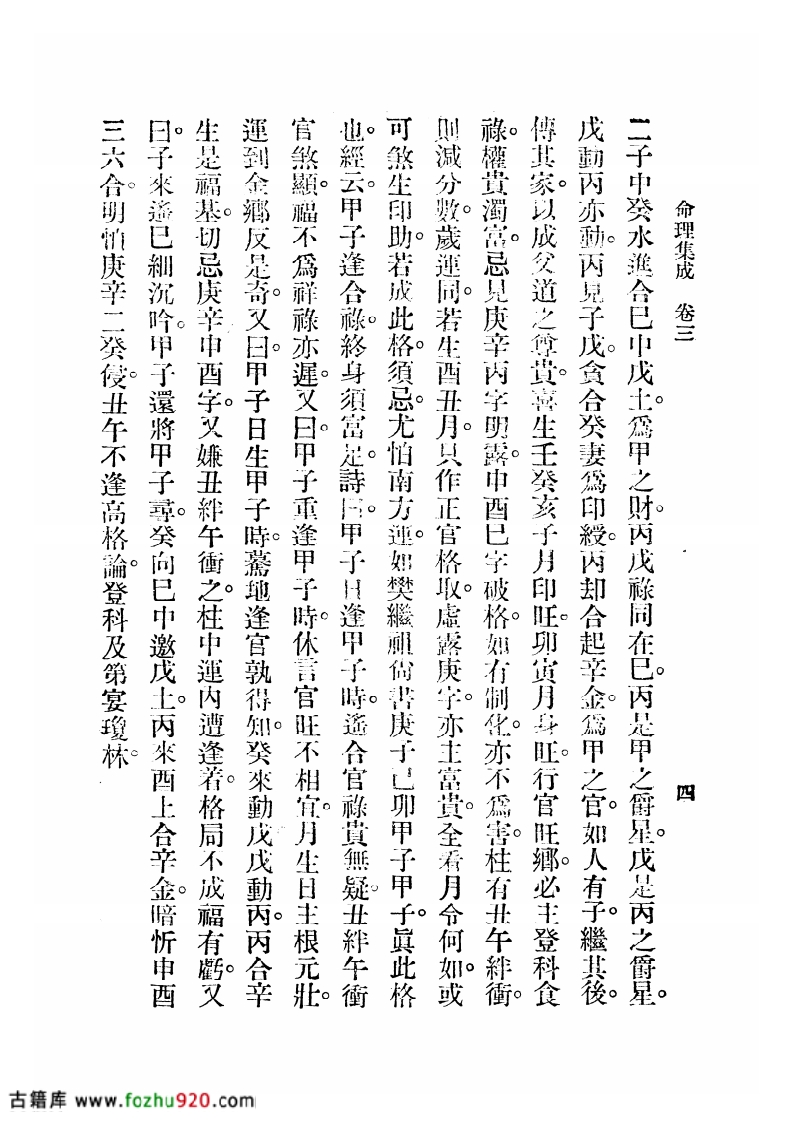 命理集成　卷三　四
二子中癸水進合巳中戊土。爲甲之財。丙戊祿同在巳。丙是甲之爵星。戊是丙之爵星。
戊動丙亦動。丙見子戊。貪合癸妻。爲印綬。丙却合起辛金。爲甲之官。如人有子。繼其後。
傳其家。以成父道之尊貴。喜生壬癸亥子月印旺。卯寅月身旺。行官旺鄉。必主登科食
祿。權貴濁富。忌見庚辛丙字明露。申酉巳字破格。如有制化。亦不爲害。柱有丑午絆衝。
則減分數。歲運同。若生酉丑月。只作正官格取。虛露庚字。亦主富貴。全看月令何如。或
可煞生印助。若成此格。須忌。尤怕南方運。如樊繼祖尙書。庚子己卯甲子甲子。眞此格
也。經云。甲子逢合祿。終身須富足。詩曰。甲子日逢甲子時。遙合官祿貴無疑。丑絆午衝
官煞顯。福不爲祥祿亦遲。又曰。甲子重逢甲子時。休言官旺不相宜。月生日主根元壯。
運到金鄉反是奇。又曰。甲子日生甲子時。驀地逢官孰得知。癸來動戊戊動丙。丙合辛
生是福基。切忌庚辛申酉字。又嫌丑絆午衝之。柱中運內遭逢著。格局不成福有虧。又
曰。子來遙巳細沉吟。甲子還將甲子尋。癸向巳中邀戊土。丙來酉上合辛金。暗忻申酉
三六合。明怕庚辛二癸侵。丑午不逢高格論。登科及第宴瓊林。
古籍库 www.fozhu920.com